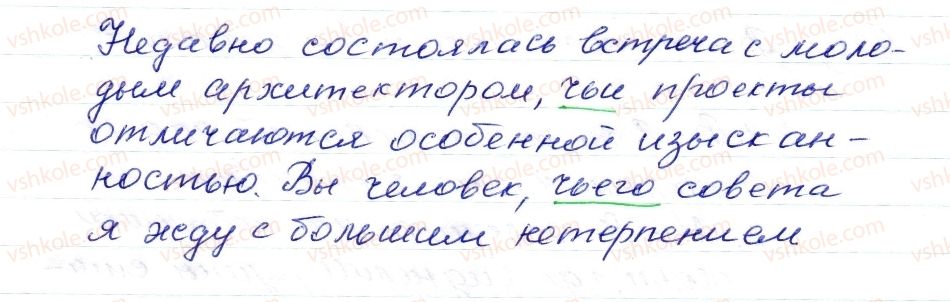 Недавно состоялась встреча с моло-
дым архитектором, чьи проекты
отличаются особенной изыскан-
ностью. Вы человек, чьего совета
я жду с большим нетерпением